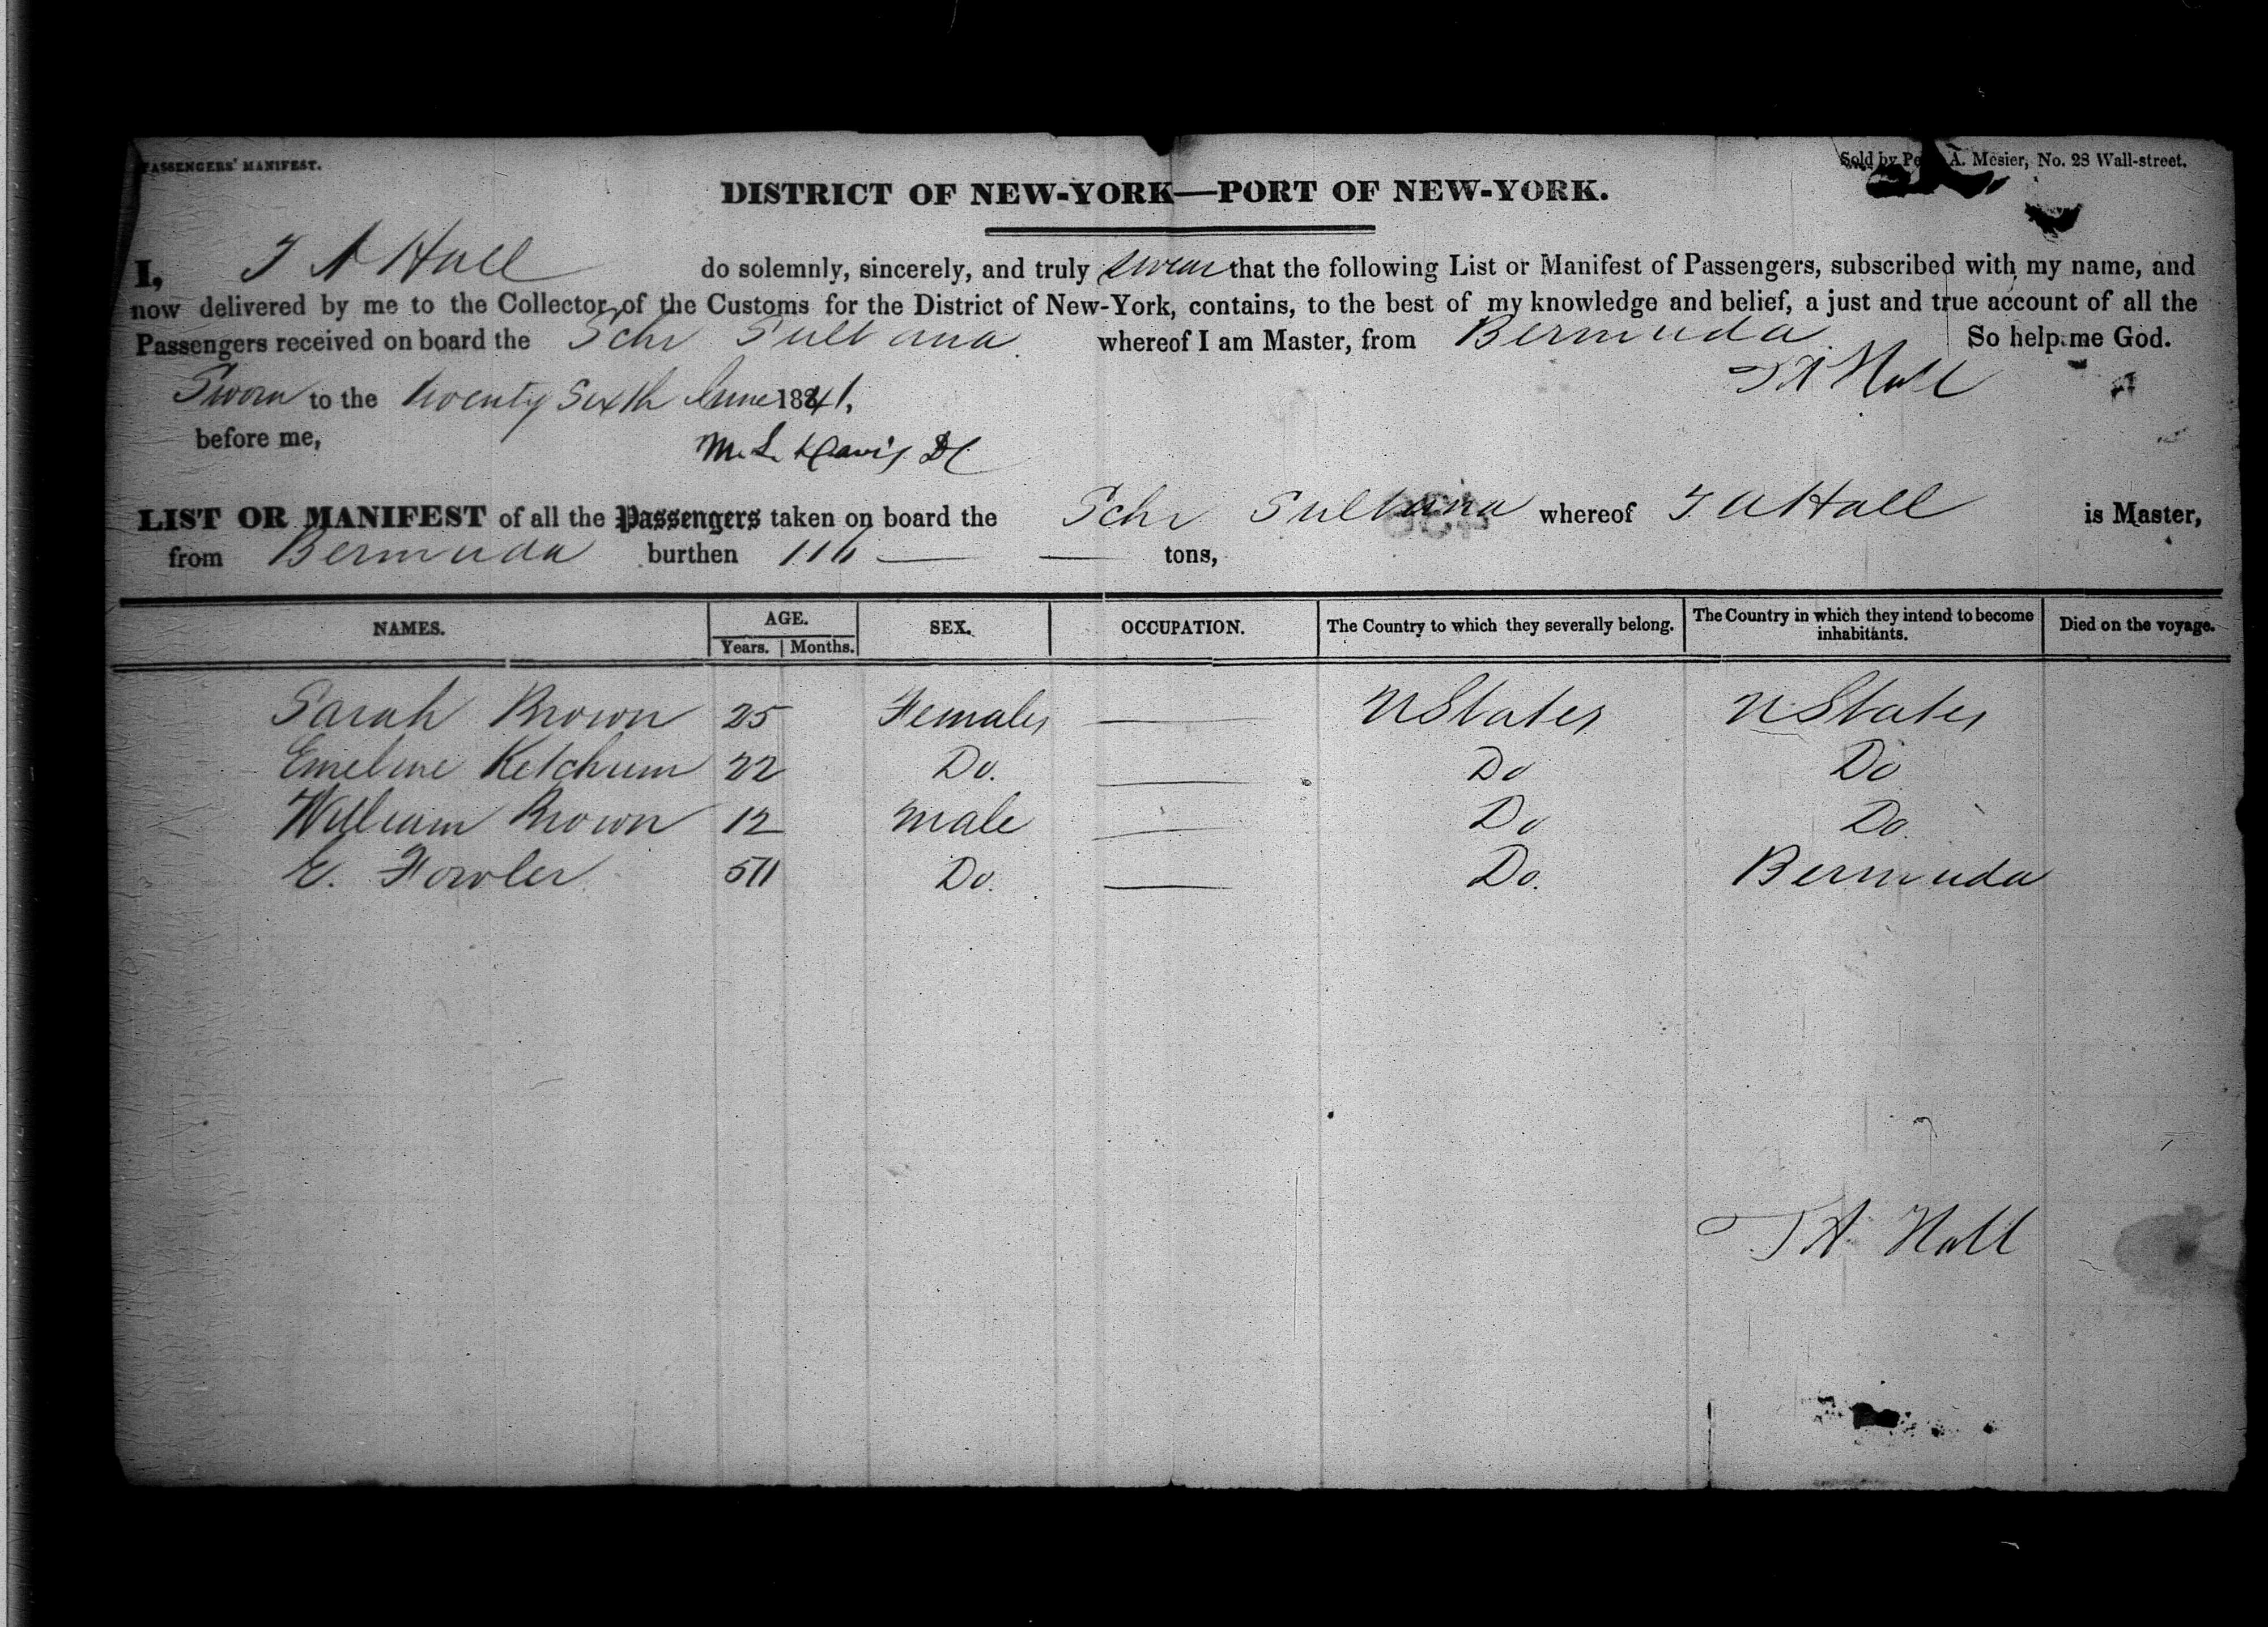 PASSENGERS' MANIFEST.
Sold by Pe A. Mesier, No. 28 Wall-street.
DISTRICT OF NEW-YORK—PORT OF NEW-YORK.
I, T A Hall do solemnly, sincerely, and truly swear that the following List or Manifest of Passengers, subscribed with my name, and
now delivered by me to the Collector of the Customs for the District of New-York, contains, to the best of my knowledge and belief, a just and true account of all the
Passengers received on board the Schr Sultana whereof I am Master, from Bermuda. So help me God.
Sworn to the twenty Sixth June 1841. T A Hall
before me, M. L. Davis DC
LIST OR MANIFEST of all the Passengers taken on board the Schr Sultana whereof T A Hall is Master,
from Bermuda burthen tons,
NAMES. AGE. Years. Months. SEX. OCCUPATION. The Country to which they severally belong. The Country in which they intend to become inhabitants. Died on the voyage.
Sarah Brown 25 Females — U States U States
Emeline Ketchum 22 Do. — Do Do
William Brown 12 male — Do Do.
E. Fowler Do. — Do. Bermuda
T A Hall